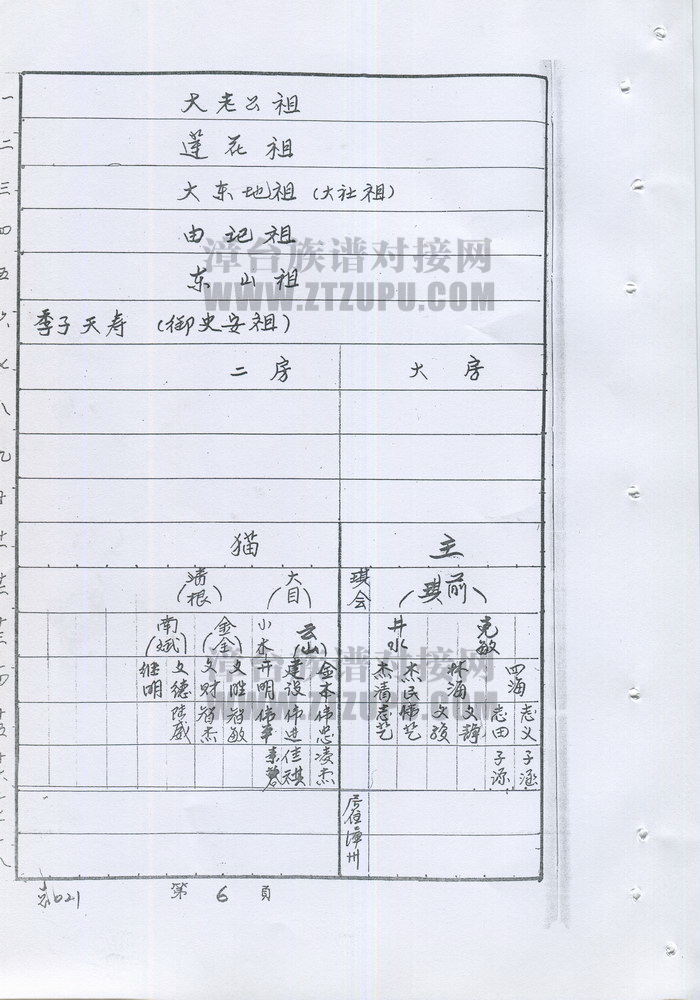 一 大老公祖
二 莲花祖
三 大东地祖（大社祖）
四 由记祖
五 东山祖
六 季子天寿（御史安祖）
七 二房 大房
八
九
十
十一 猫 主
十二 清（根） 大（目） 琪会 前（琪）
十三 南（斌） 金（全） 小木 云（山） 井水 克敏
十四 继明 文德 文财 文胜 开明 建设 金本 杰清 杰民 林海 四海
十五 陆威 智杰 智敏 伟军 伟进 伟忠 志艺 伟艺 文骏 文静 志田 志义
十六 佳祺 凌杰 子源 子涵
十七 居住漳州
十八
漳台族谱对接网
WWW.ZTZUPU.COM
漳台族谱对接网
WWW.ZTZUPU.COM
第 6 頁